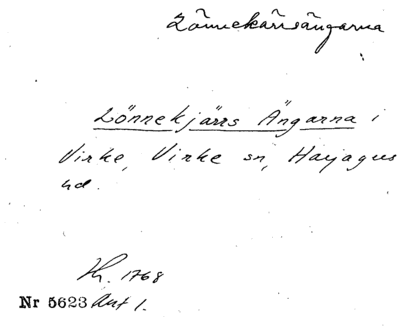 Lönnekärrsängarna
Lönnekjärrs Ängarna i
Virke, Virke sn, Harjagers
hd.
1768
Nr 5623 Akt 1.